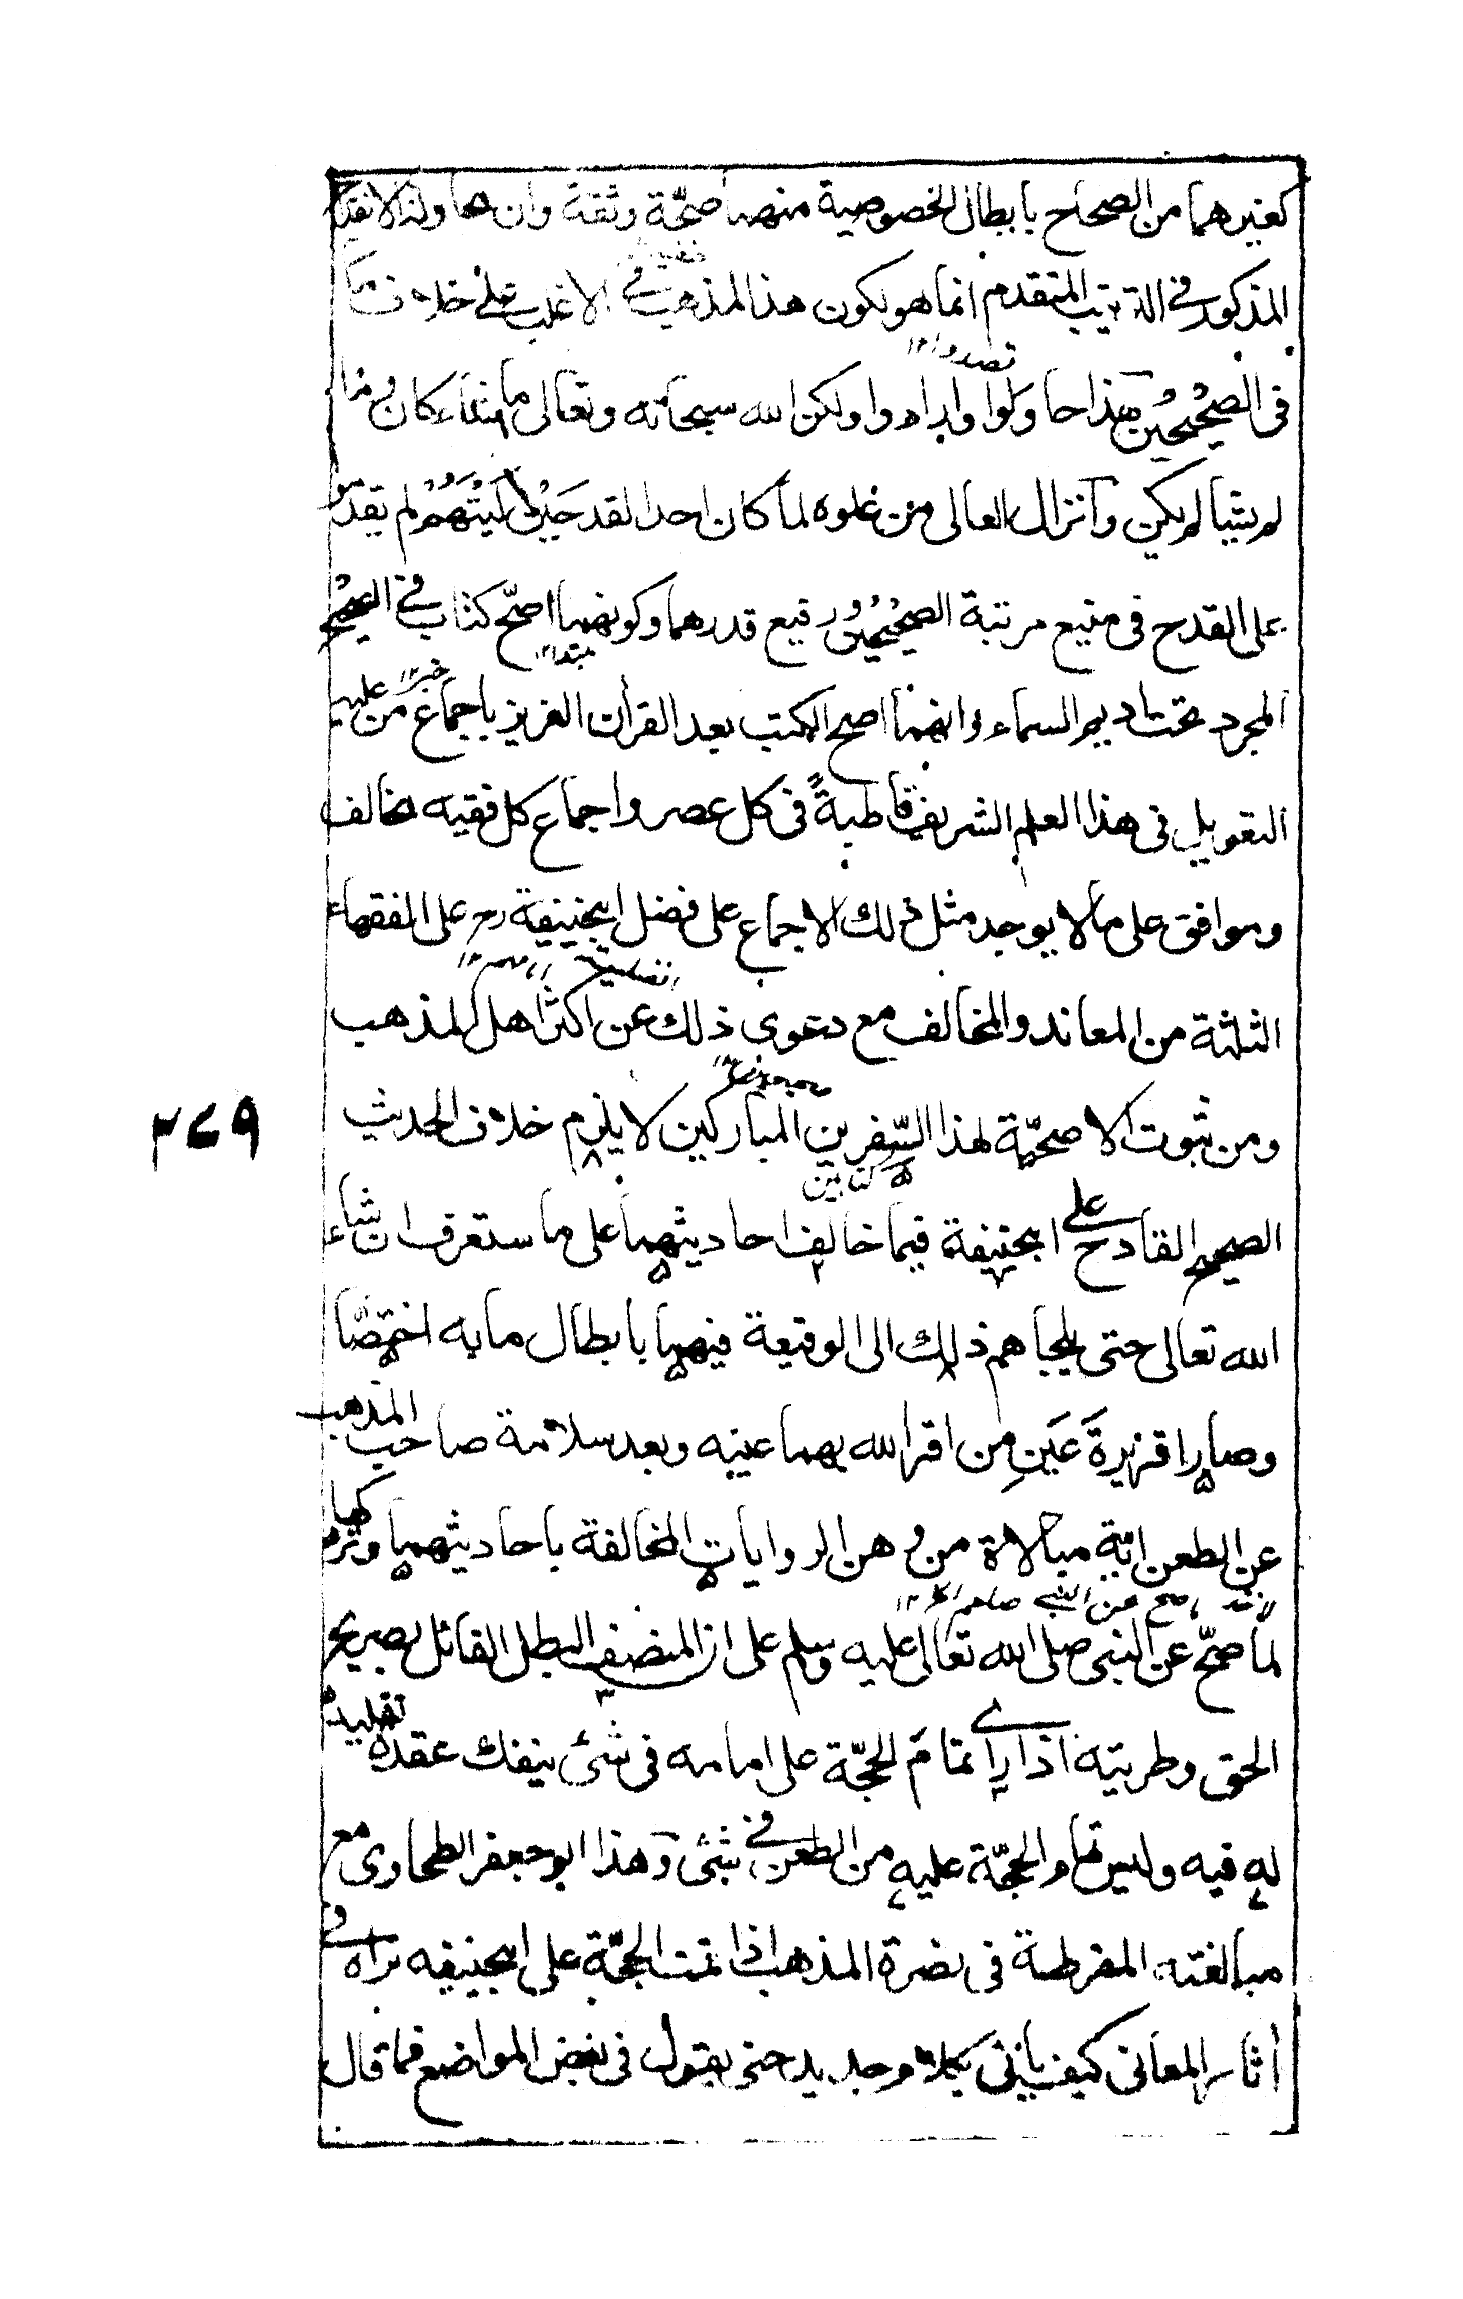 كغيرهما من الصحاح بابطال الخصوصية منهما صحّة وثقة وان هما ولذا لا نقدح
المذكور فى الترتيب المتقدم انما هو لكون هذا المذهب فى الاغلب على خلاف ما
قصدوا ١٢
فى الصحيحين هذا حاولوا وارادوا ولكن الله سبحانه وتعالى ما شاء كان وما
لم يشا لم يكن وانزال العالى من غلوه لما كان احدا لقدحين ليتهم لم يقدر
على القدح فى منيع مرتبة الصحيحين ورفيع قدرهما وكونهما اصحّ كتاب فى الصحيح
مبتدا ١٢ خبر ١٢
المجرد تحت اديم السماء وانهما اصح الكتب بعد القرأن العزيز باجماع من عليه
التعويل فى هذا العلم الشريف قاطبةً فى كل عصر واجماع كل فقيه مخالف
وموافق على ما لا يوجد مثل ذلك الاجماع على فضل ابيحنيفة رح على الفقهاء
الثلثة من المعاند والمخالف مع دعوى ذلك عن اكثر اهل المذهب
ومن ثبوت الاصحيّة لهذا السّفرين المباركين لا يلزم خلاف الحديث
٣٤٩
كتابين
الصحيح القادح على ابيحنيفة فيما خالف احاديثهما على ما ستعرف ان شاء
الله تعالى حتى يلجاهم ذلك الى الوقيعة فيهما بابطال ما به اختصّا
وصارا قزيرة عَينِ مِن اقرا لله بهما عينه وبعد سلامة صاحب المذهب
عن الطعن ايّة مبالاة من وهن الروايات المخالفة باحاديثهما وتركها
صح عن النبى صلعم ١٢
لما صحّ عن النبى صلى الله تعالى عليه وسلم على ان المنصف البطل القائل بصريح
الحق وطريته اذا راى تمامَ الحجّة على امامه فى شئ ينفك عقدة تقليده
له فيه وليس تمام الحجّة عليه من الطعن فى شئ وهذا ابو جعفر الطحاوى مع
مبالغته المفرطة فى نصرة المذهب اذا تمت الحجّة على ابيحنيفه تراه فى
أثار المعانى كيف يأتى بكلام جديد حتى يقول فى بعض المواضع فما قال